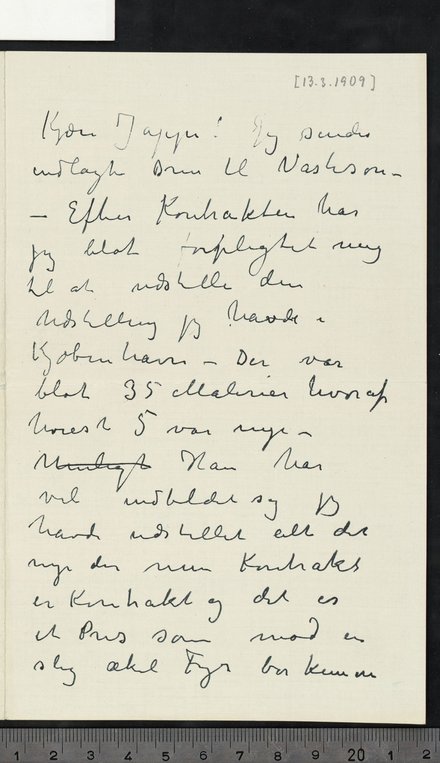 [13.3.1909]
Kjære Jappe! Jeg sender
indlagte Brev til
– Efter Kontrakten har
jeg blot forpligtet mig
til at udstille den
Udstilling jeg havde i
Kjøbenhavn – Der var
blot 35 Malerier hvoraf
høiest 5 var nye –
Han har
vel indbildt sig jeg
havde udstillet alt det
nye der men Kontrakt
er Kontrakt og det er
et Pres som mod en
slig ækel Fyr bør kunne
1 2 3 4 5 6 7 8 9 20 1 2